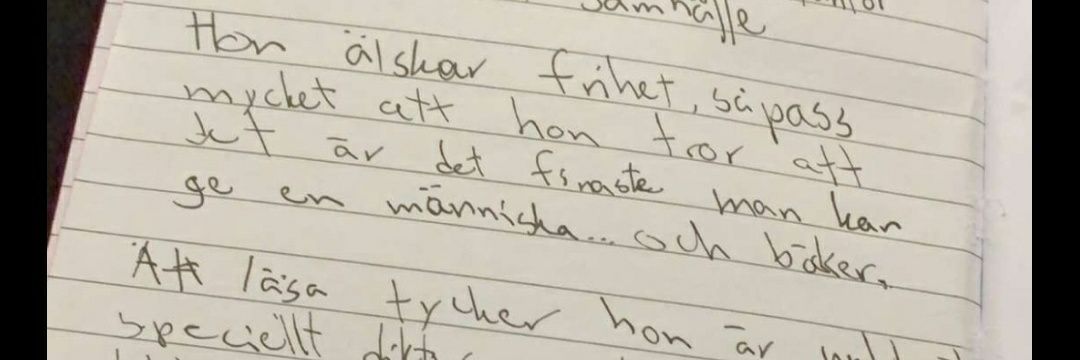 samhälle
Hon älskar frihet, såpass
mycket att hon tror att
det är det finaste man kan
ge en människa... och böcker.
Att läsa tycker hon är
speciellt